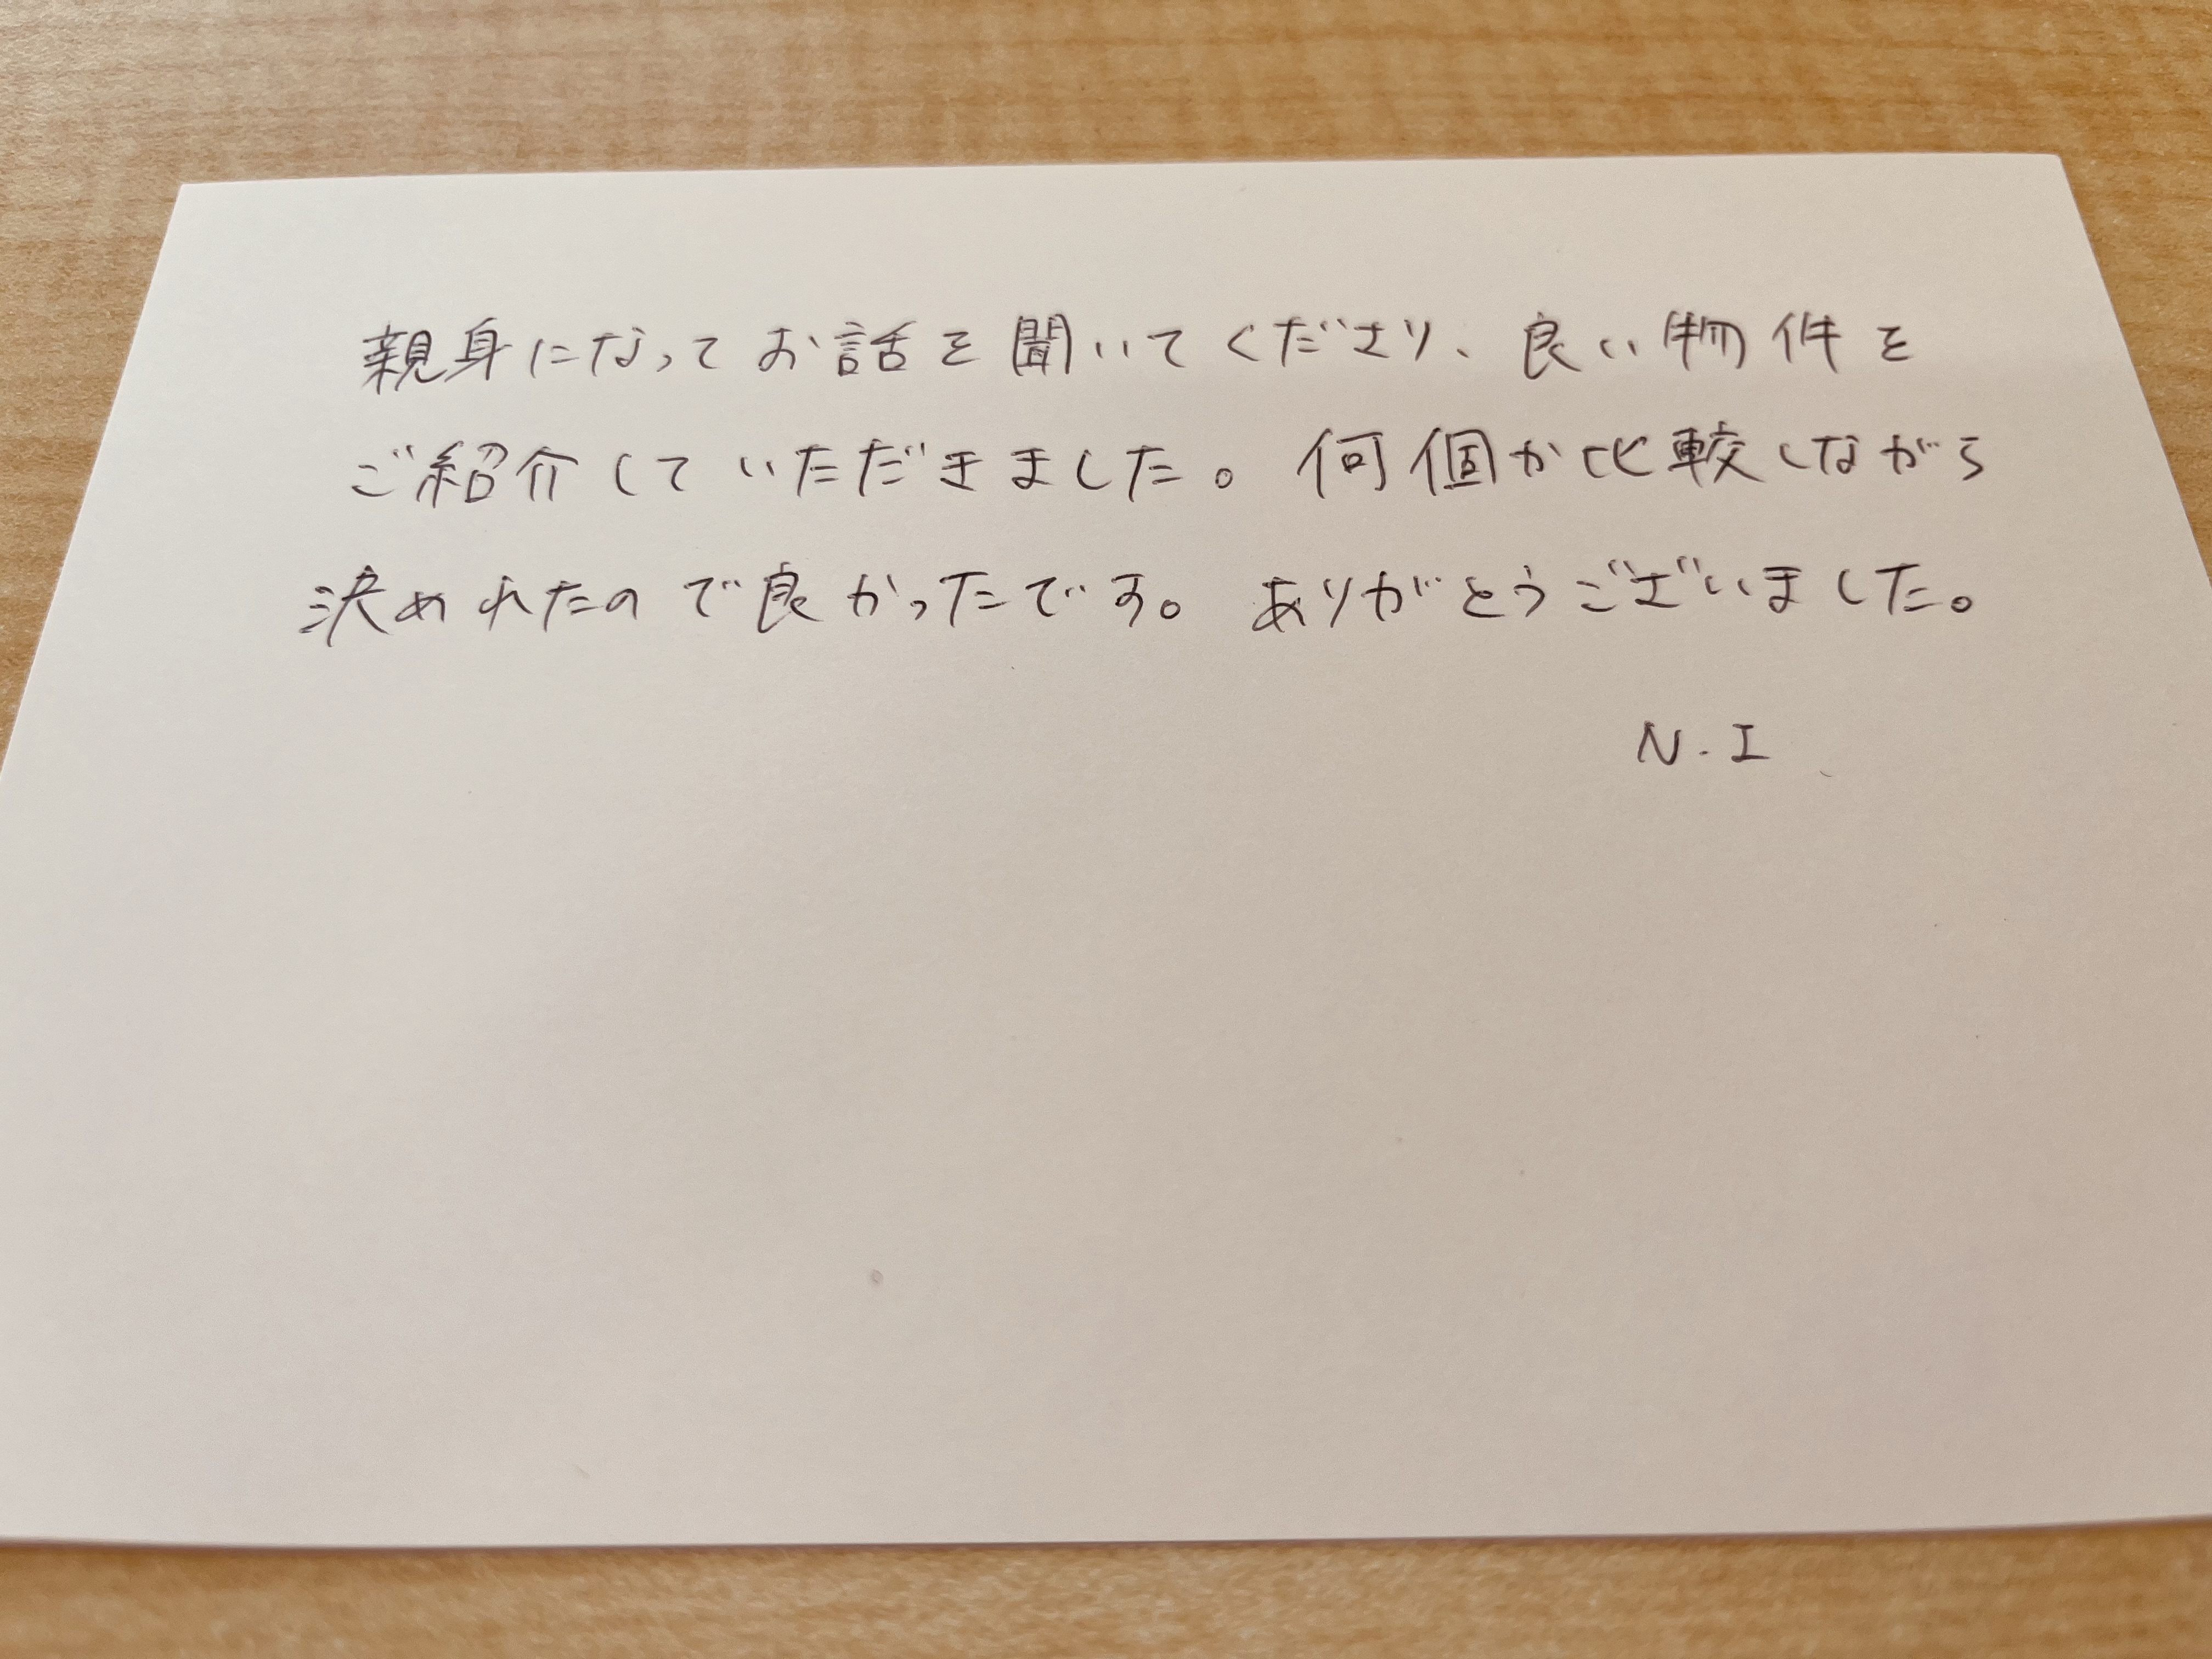 親身になってお話を聞いてくださり、良い物件を
ご紹介していただきました。何個か比較しながら
決めれたので良かったです。ありがとうございました。
N.I